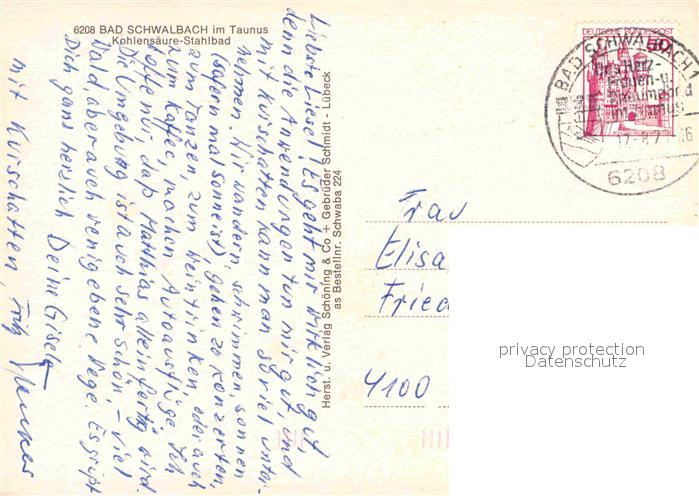 6208 BAD SCHWALBACH im Taunus
Kohlensäure-Stahlbad
Liebste Liesel! Es geht mir wirklich gut,
denn die Anwendungen tun mir gut, und
mit Kurschatten kann man so viel unter-
nehmen. Wir wandern, schwimmen, sonnen
(sofern mal Sonne ist), gehen zu Konzerten,
zum Tanzen, zum Wein trinken, oder auch
zum Kaffee, machen Autoausflüge. Ich
hoffe nur, daß Matthias allein fertig wird.
Die Umgebung ist auch sehr schön, - viel
Wald, aber auch wenig ebene Wege. Es grüßt
Dich ganz herzlich Deine Gisela
mit Kurschatten, Fritz
Herst. u. Verlag Schöning & Co + Gebrüder Schmidt - Lübeck
as Bestellnr. Schwaba 224
DEUTSCHE BUNDESPOST
50
BAD SCHWALBACH 1
Das Herz-
Frauen-u.
Rheumabad
im Taunus
6208
Frau
Elisa
Fried
4100
privacy protection
Datenschutz